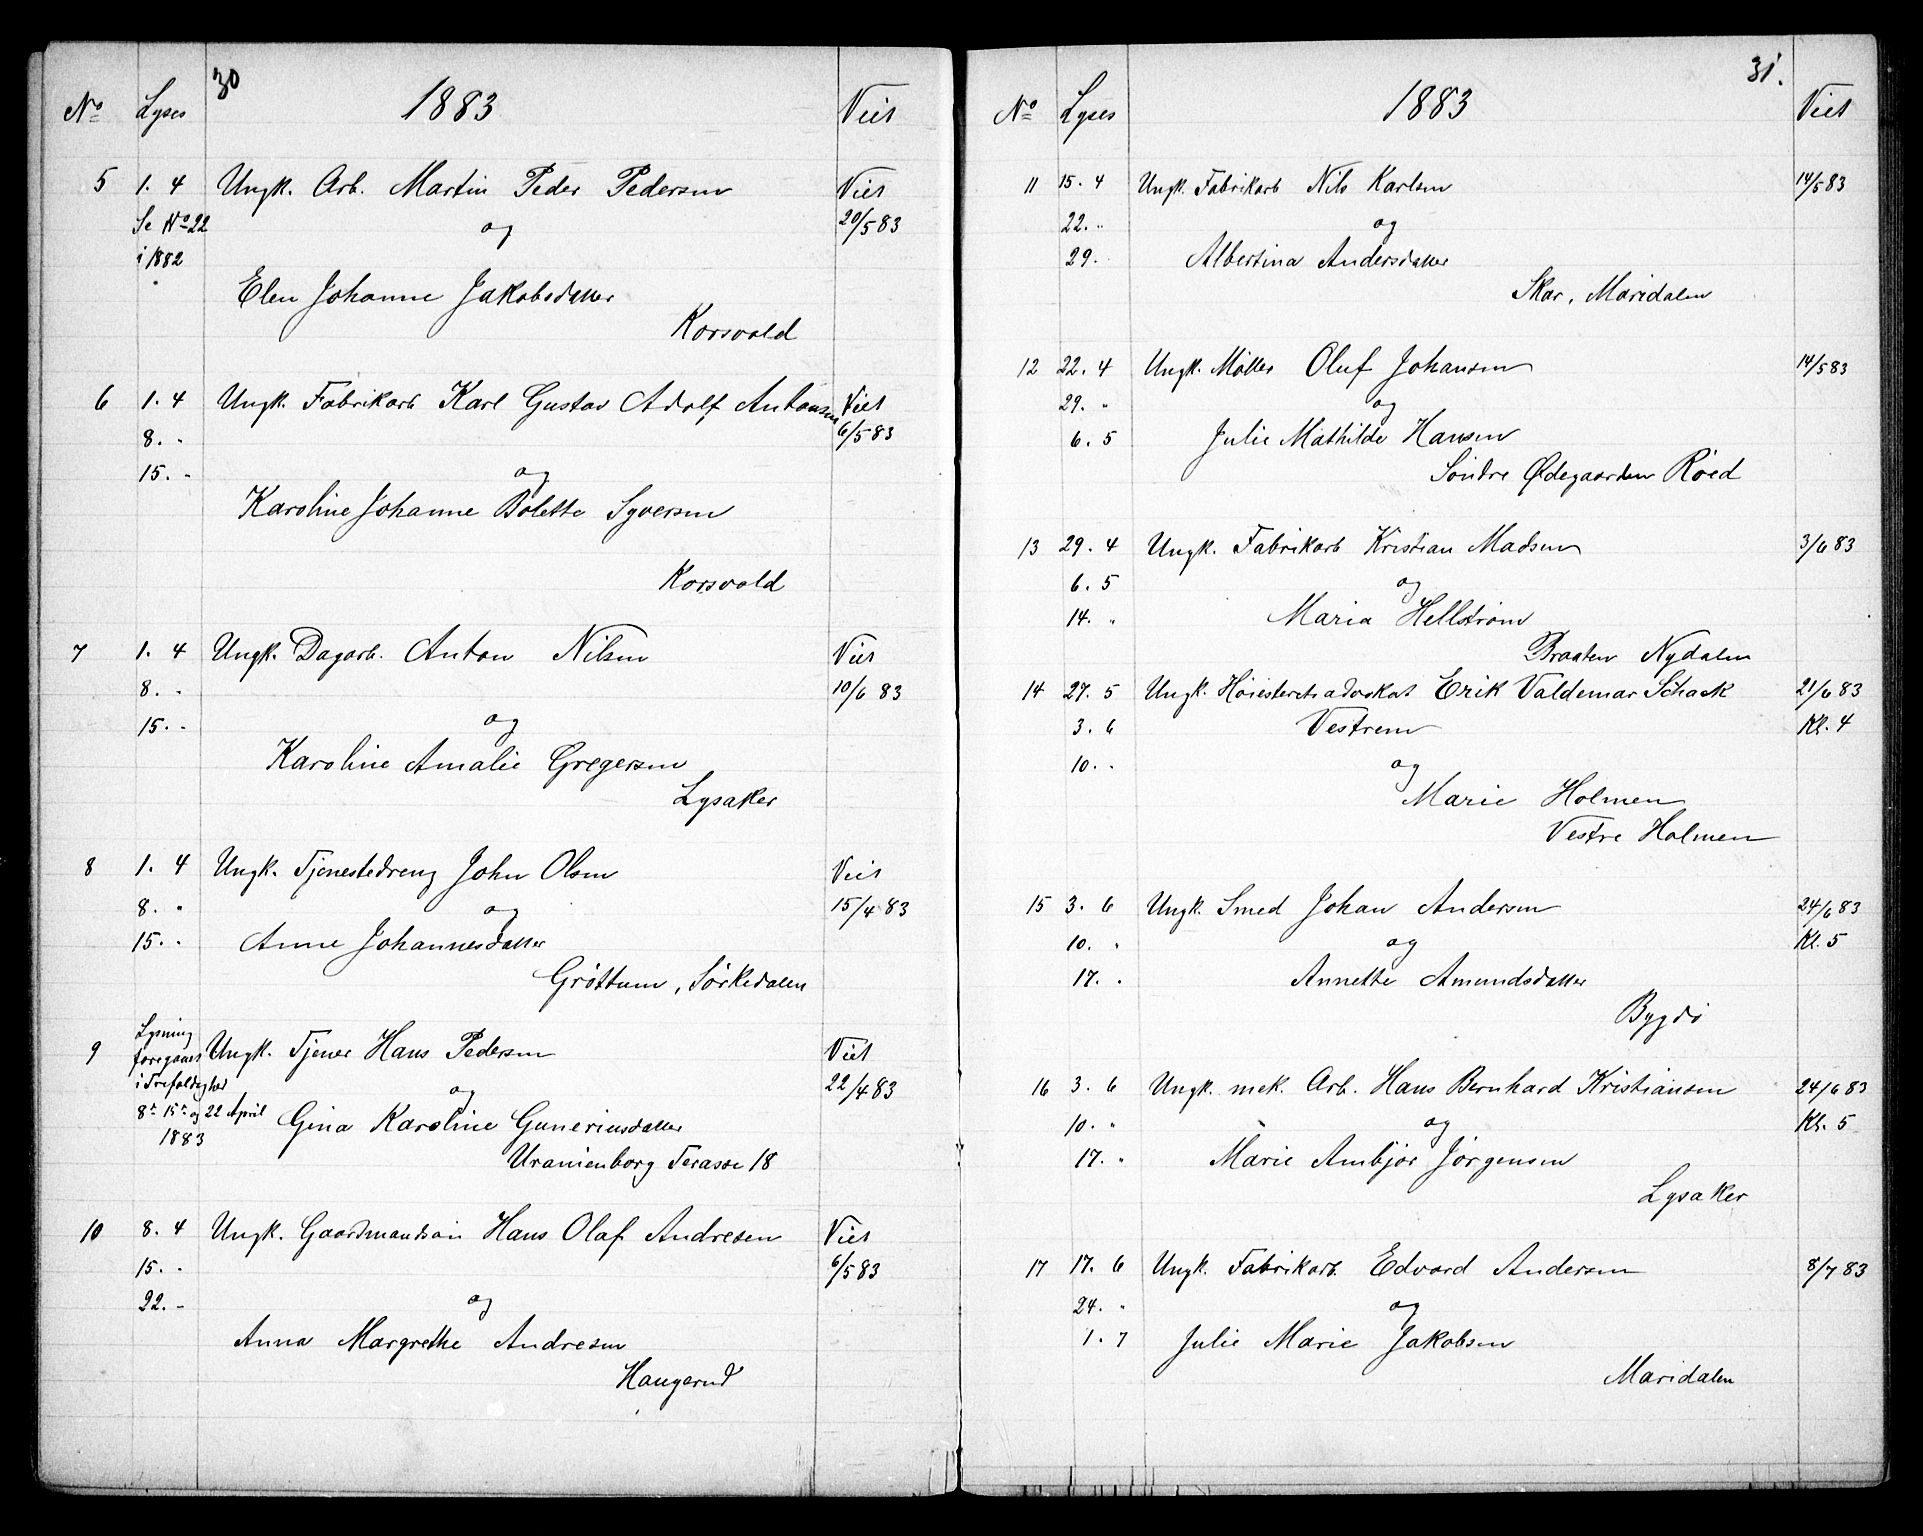 30
No Lyses 1883 Viet
5 1. 4 Ungk. Arb. Martin Peder Pedersen Viet
Se No 22 og 20/5 83
i 1882
Elen Johanne Jakobsdatter
Korsvold
6 1. 4 Ungk. Fabrikarb Karl Gustav Adolf Antonsen Viet
8. " 6/5 83
15. " og
Karoline Johanne Bolette Syversen
Korsvold
7 1. 4 Ungk. Dagarb. Anton Nilsen Viet
8. " 10/6 83
15. " og
Karoline Amalie Gregersen
Lysaker
8 1. 4 Ungk. Tjenestedreng John Olsen Viet
8. " og 15/4 83
15. " Anne Johannesdatter
Gröttum, Sörkedalen
Lysning
9 foregaaet Ungk. Tjener Hans Pedersen Viet
i Trefoldighed og 22/4 83
8de 15de og 22 April Gina Karoline Guneriusdatter
1883
Uranienborg Terasse 18
10 8. 4 Ungk. Gaardmandsön Hans Olaf Andresen Viet
15. " 6/5 83
22. " og
Anna Margrethe Andresen
Haugerud
31.
No Lyses 1883 Viet
11 15. 4 Ungk. Fabrikarb Nils Karlsen 14/5 83
22. " og
29. " Albertina Andersdatter
Skar, Maridalen
12 22. 4 Ungk. Möller Oluf Johansen 14/5 83
29. " og
6. 5 Julie Mathilde Hansen
Söndre Ødegaarden Röed
13 29. 4 Ungk. Fabrikarb Kristian Madsen 3/6 83
6. 5 og
14. " Maria Hellström
Braaten Nydalen
14 27. 5 Ungk. Höiesteretsadvokat Erik Valdemar Schack 21/6 83
3. 6 Vestrem Kl. 4
10. " og
Marie Holmen
Vestre Holmen
15 3. 6 Ungk. Smed Johan Andersen 24/6 83
10. " og Kl. 5
17. " Annette Amundsdatter
Bygdö
16 3. 6 Ungk. mek. Arb. Hans Bernhard Kristiansen 24/6 83
10. " og Kl. 5
17. " Marie Ambjör Jörgensen
Lysaker
17 17. 6 Ungk. Fabrikarb. Edvard Andersen 8/7 83
24. " og
1. 7 Julie Marie Jakobsen
Maridalen